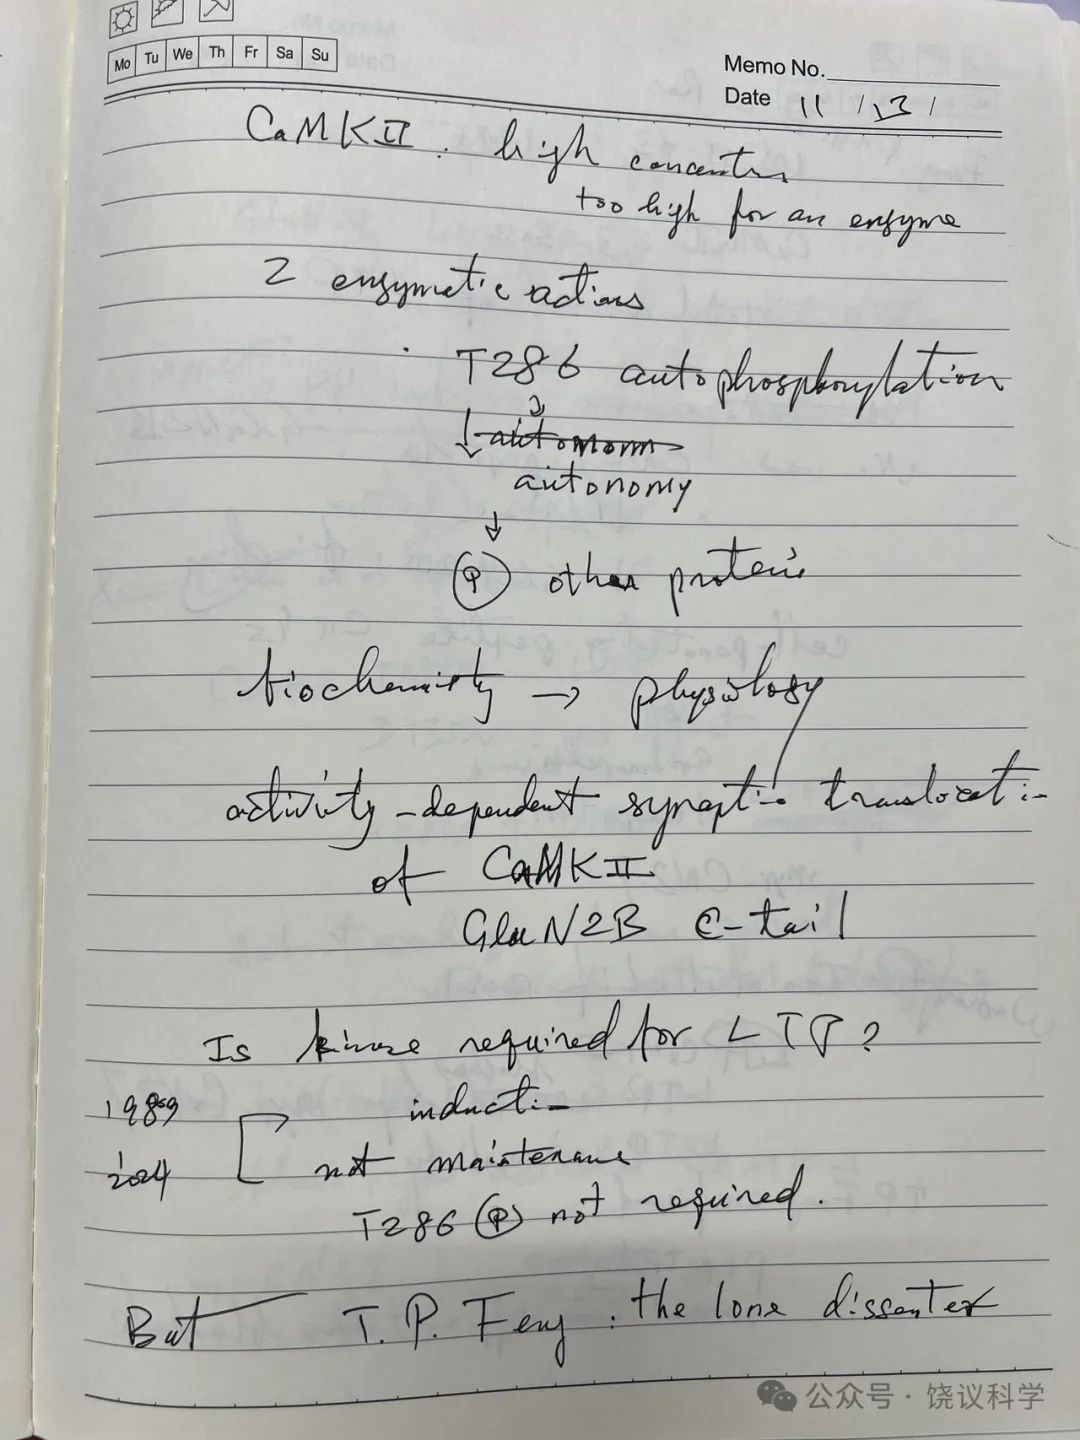 Mo Tu We Th Fr Sa Su
Memo No.
Date 11/13/
CaMKII : high concentrn
too high for an enzyme
2 enzymetic actions
T286 autophosphorylation
↓ autonom
autonomy
↓
Ⓟ other proteins
biochemistry → physiology
activity-dependent synaptic translocati-
of CaMKII
GluN2B C-tail
Is kinase required for LTP?
1989 inducti-
2024 not maintenance
T286 Ⓟ not required.
But T. P. Feng : the lone dissenter
公众号 · 饶议科学